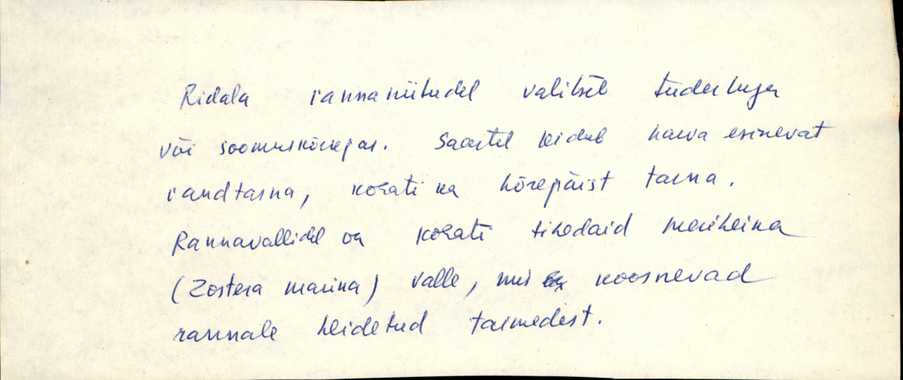 Ridala rannaniitudel valitseb tuderluga
või soomuskõrrejas. Saartel leidub harva esinevat
randtarna, kohati ka hõrepäist tarna.
Rannavallidel on kohati tihedaid meriheina
(Zostera marina) valle, mis koosnevad
rannale heidetud taimedest.